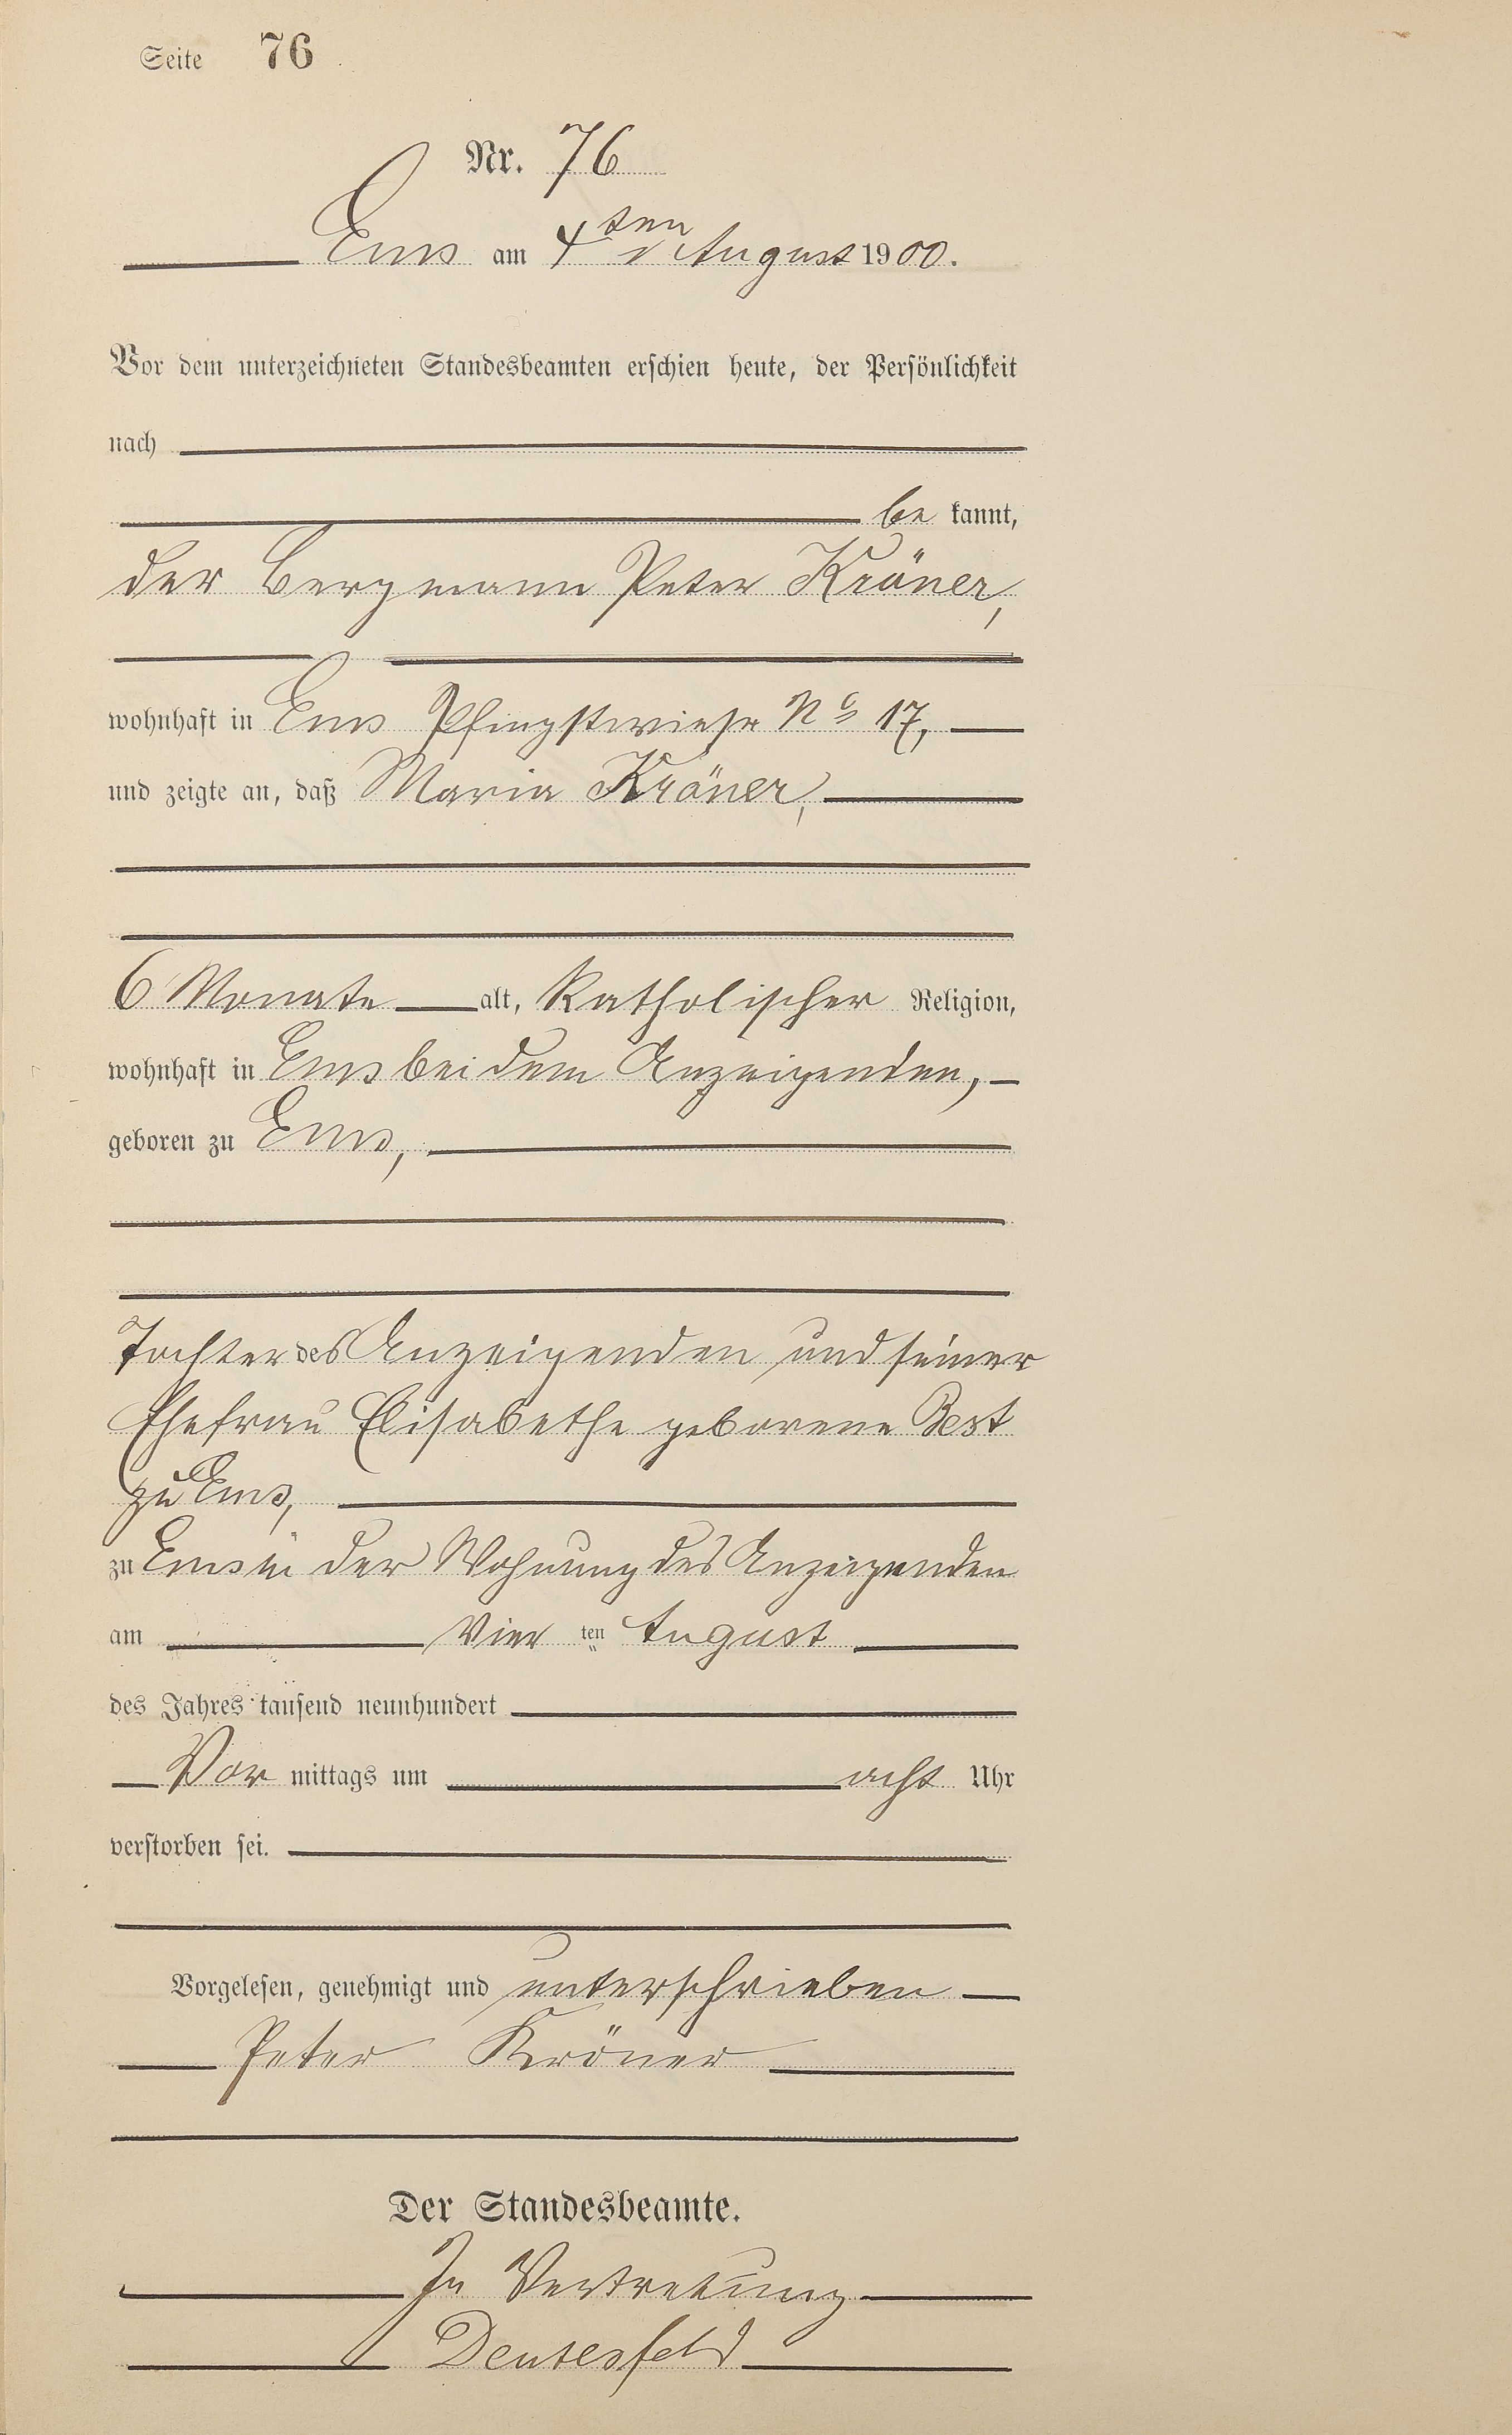 Seite 76
Nr. 76
Ems am 4ten August 1900.
Vor dem unterzeichneten Standesbeamten erschien heute, der Persönlichkeit
nach
be kannt,
der Bergmann Peter Kröner,
wohnhaft in Ems Pfingstwiese No 17,
und zeigte an, daß Maria Kröner,
6 Monate alt, Katholischer Religion,
wohnhaft in Ems bei dem Anzeigenden,
geboren zu Ems,
Tochter des Anzeigenden und seiner
Ehefrau Elisabethe geborene Best
zu Ems,
zu Ems in der Wohnung des Anzeigenden
am Vier ten August
des Jahres tausend neunhundert
Vor mittags um acht Uhr
verstorben sei.
Vorgelesen, genehmigt und unterschrieben
Peter Kröner
Der Standesbeamte.
In Vertretung
Deusesfeld